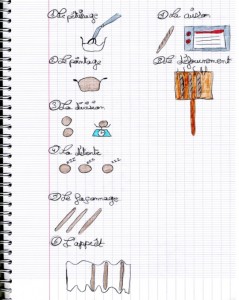 ① Le pétrissage
② Le pointage
③ La division
④ La détente
zzz zzz zzz
⑤ Le façonnage
⑥ L'apprêt
⑦ La cuisson
⑧ Le défournement